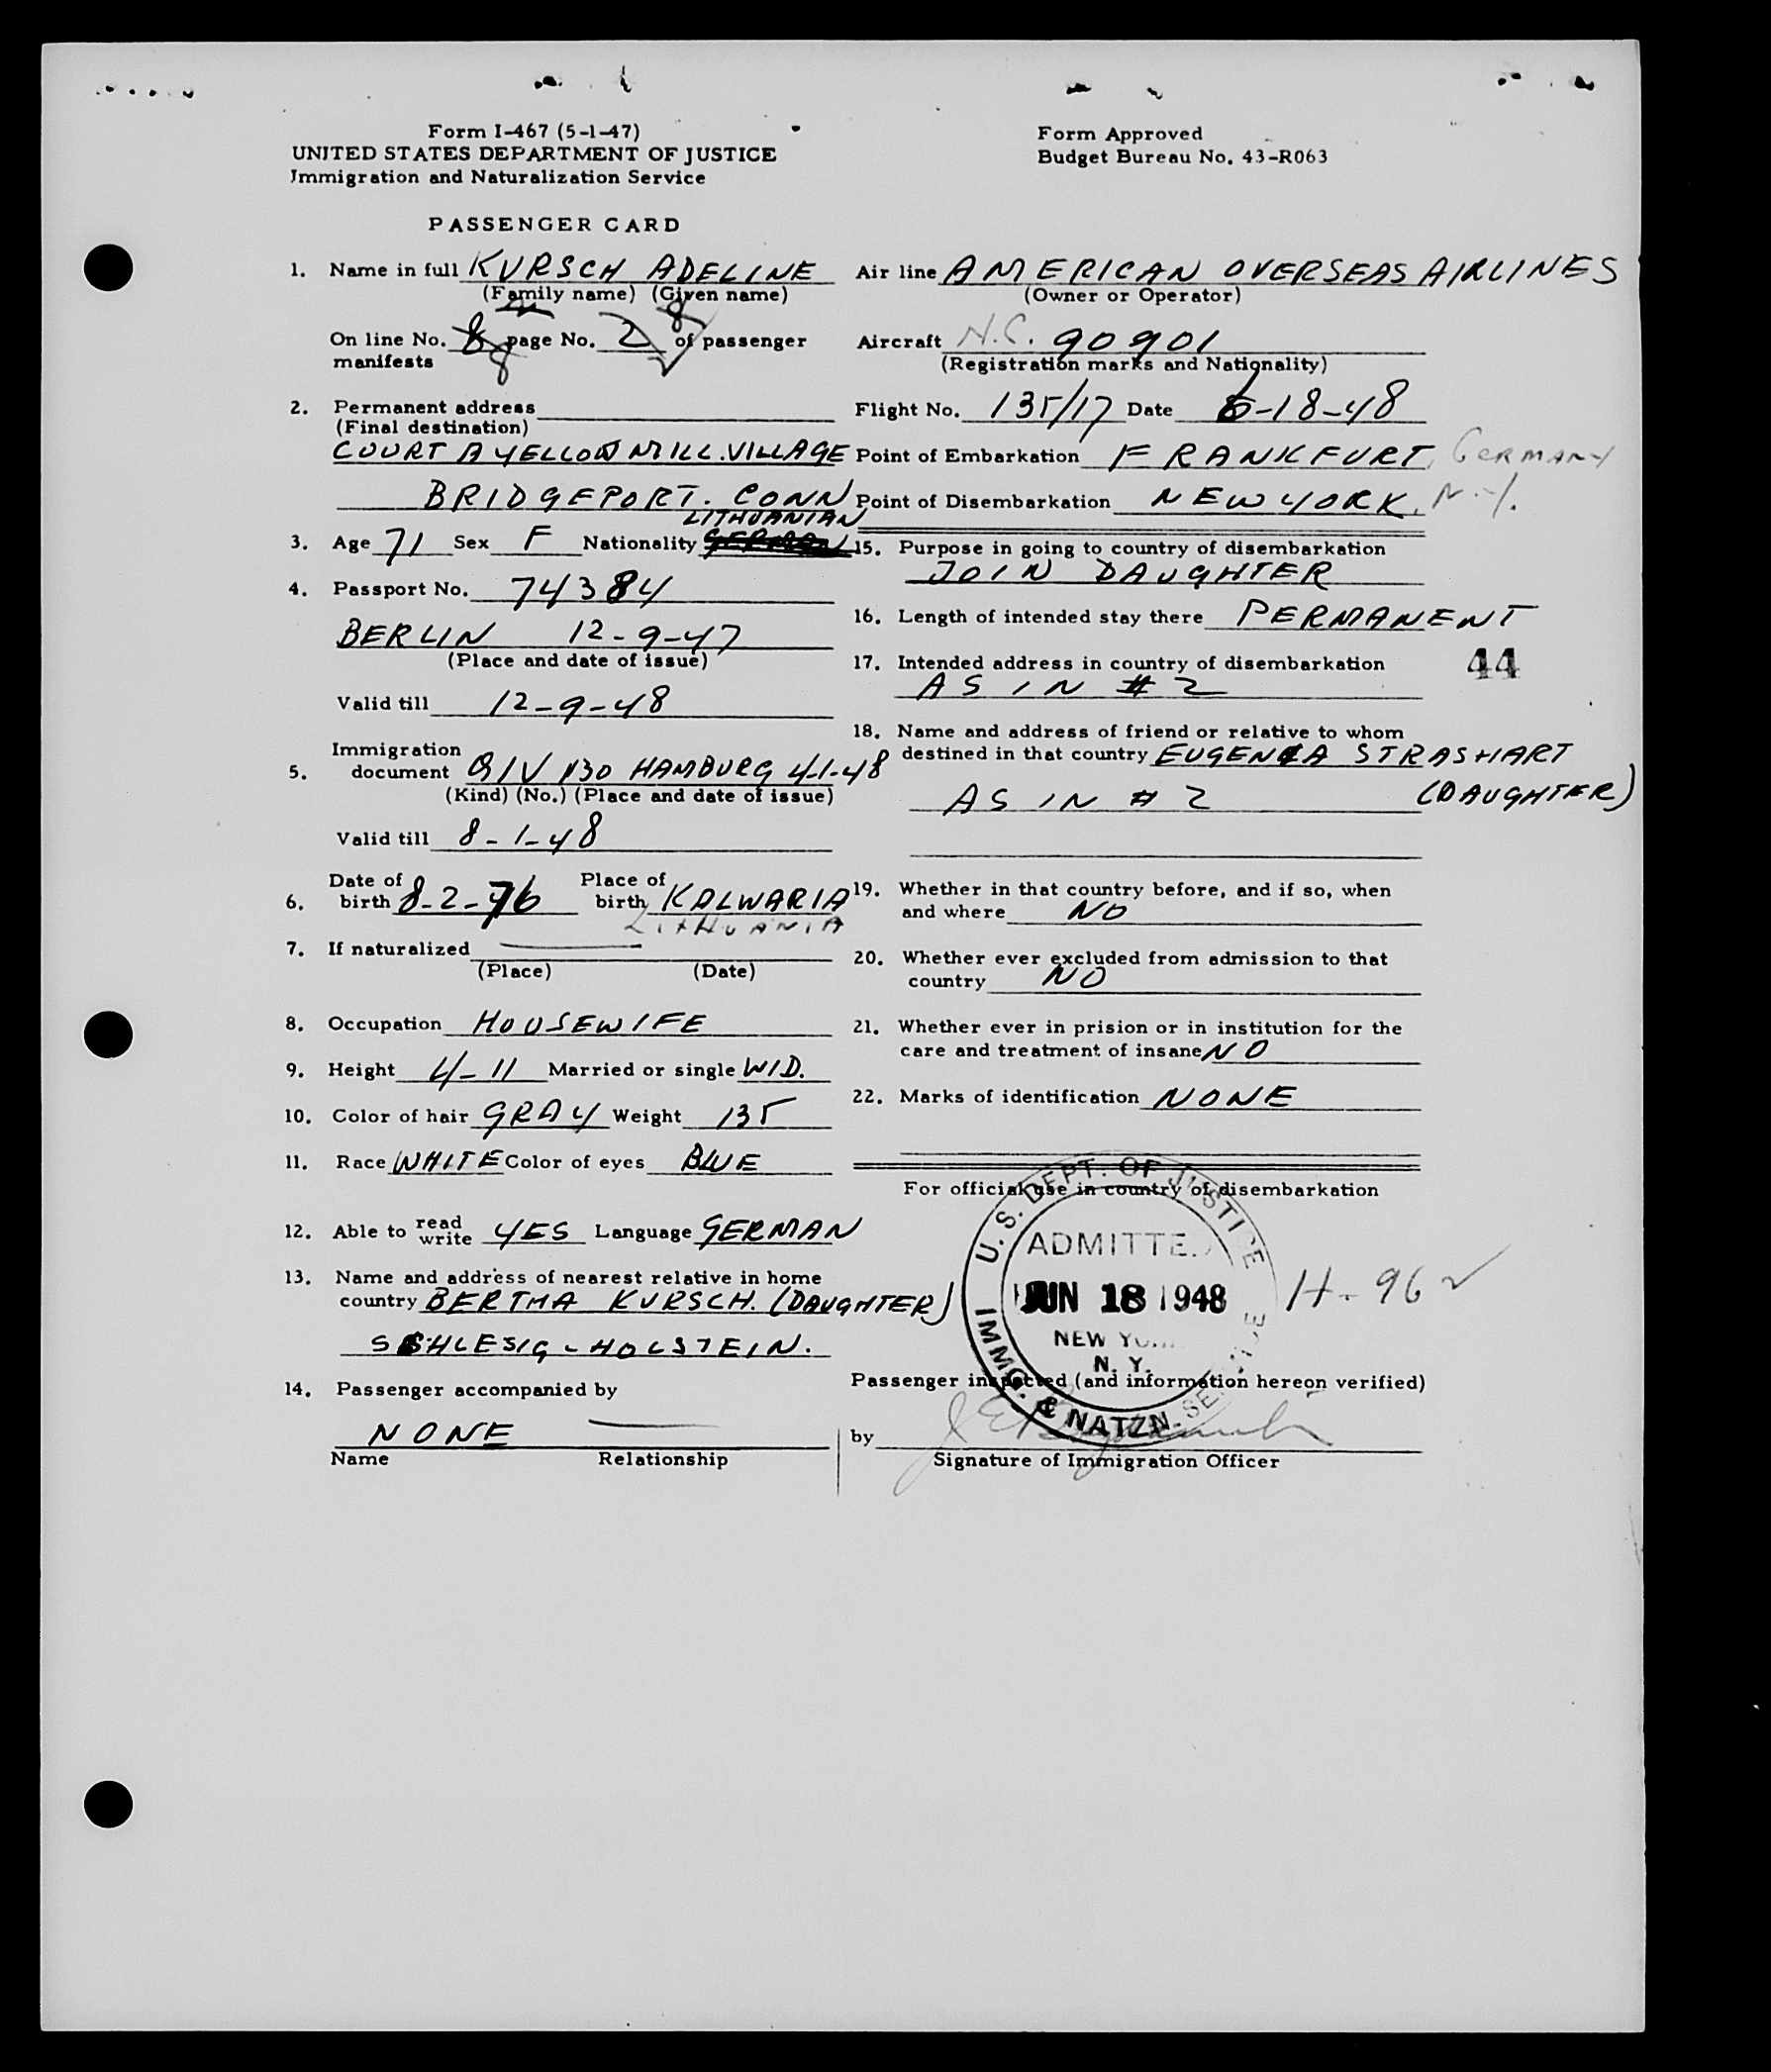 Form I-467 (5-1-47)
UNITED STATES DEPARTMENT OF JUSTICE
Immigration and Naturalization Service
Form Approved
Budget Bureau No. 43-R063
PASSENGER CARD
1. Name in full KURSCH ADELINE
(Family name) (Given name)
On line No. 8 page No. 2 of passenger
manifests
2. Permanent address
(Final destination)
COURT A YELLOW MILL. VILLAGE
BRIDGEPORT. CONN
LITHUANIAN
3. Age 71 Sex F Nationality GERMAN
4. Passport No. 74384
BERLIN 12-9-47
(Place and date of issue)
Valid till 12-9-48
Immigration
5. document QIV 1130 HAMBURG 4-1-48
(Kind) (No.) (Place and date of issue)
Valid till 8-1-48
6. Date of birth 8-2-76 Place of birth KALWARIA
LITHUANIA
7. If naturalized
(Place) (Date)
8. Occupation HOUSEWIFE
9. Height 4-11 Married or single WID.
10. Color of hair GRAY Weight 135
11. Race WHITE Color of eyes BLUE
12. Able to read write YES Language GERMAN
13. Name and address of nearest relative in home
country BERTHA KURSCH. (DAUGHTER)
SCHLESIG-HOLSTEIN.
14. Passenger accompanied by
NONE
Name Relationship
Air line AMERICAN OVERSEAS AIRLINES
(Owner or Operator)
Aircraft N.C. 90901
(Registration marks and Nationality)
Flight No. 135/17 Date 6-18-48
Point of Embarkation FRANKFURT, GERMANY
Point of Disembarkation NEW YORK, N.Y.
15. Purpose in going to country of disembarkation
JOIN DAUGHTER
16. Length of intended stay there PERMANENT
17. Intended address in country of disembarkation
44
AS IN # 2
18. Name and address of friend or relative to whom
destined in that country EUGENIA STRASHART
AS IN # 2 (DAUGHTER)
19. Whether in that country before, and if so, when
and where NO
20. Whether ever excluded from admission to that
country NO
21. Whether ever in prision or in institution for the
care and treatment of insane NO
22. Marks of identification NONE
For official use in country of disembarkation
U.S. DEPT. OF JUSTICE
ADMITTED
JUN 18 1948
NEW YORK
N. Y.
IMMG. & NATZN. SERVICE
H-96
Passenger inspected (and information hereon verified)
by
Signature of Immigration Officer